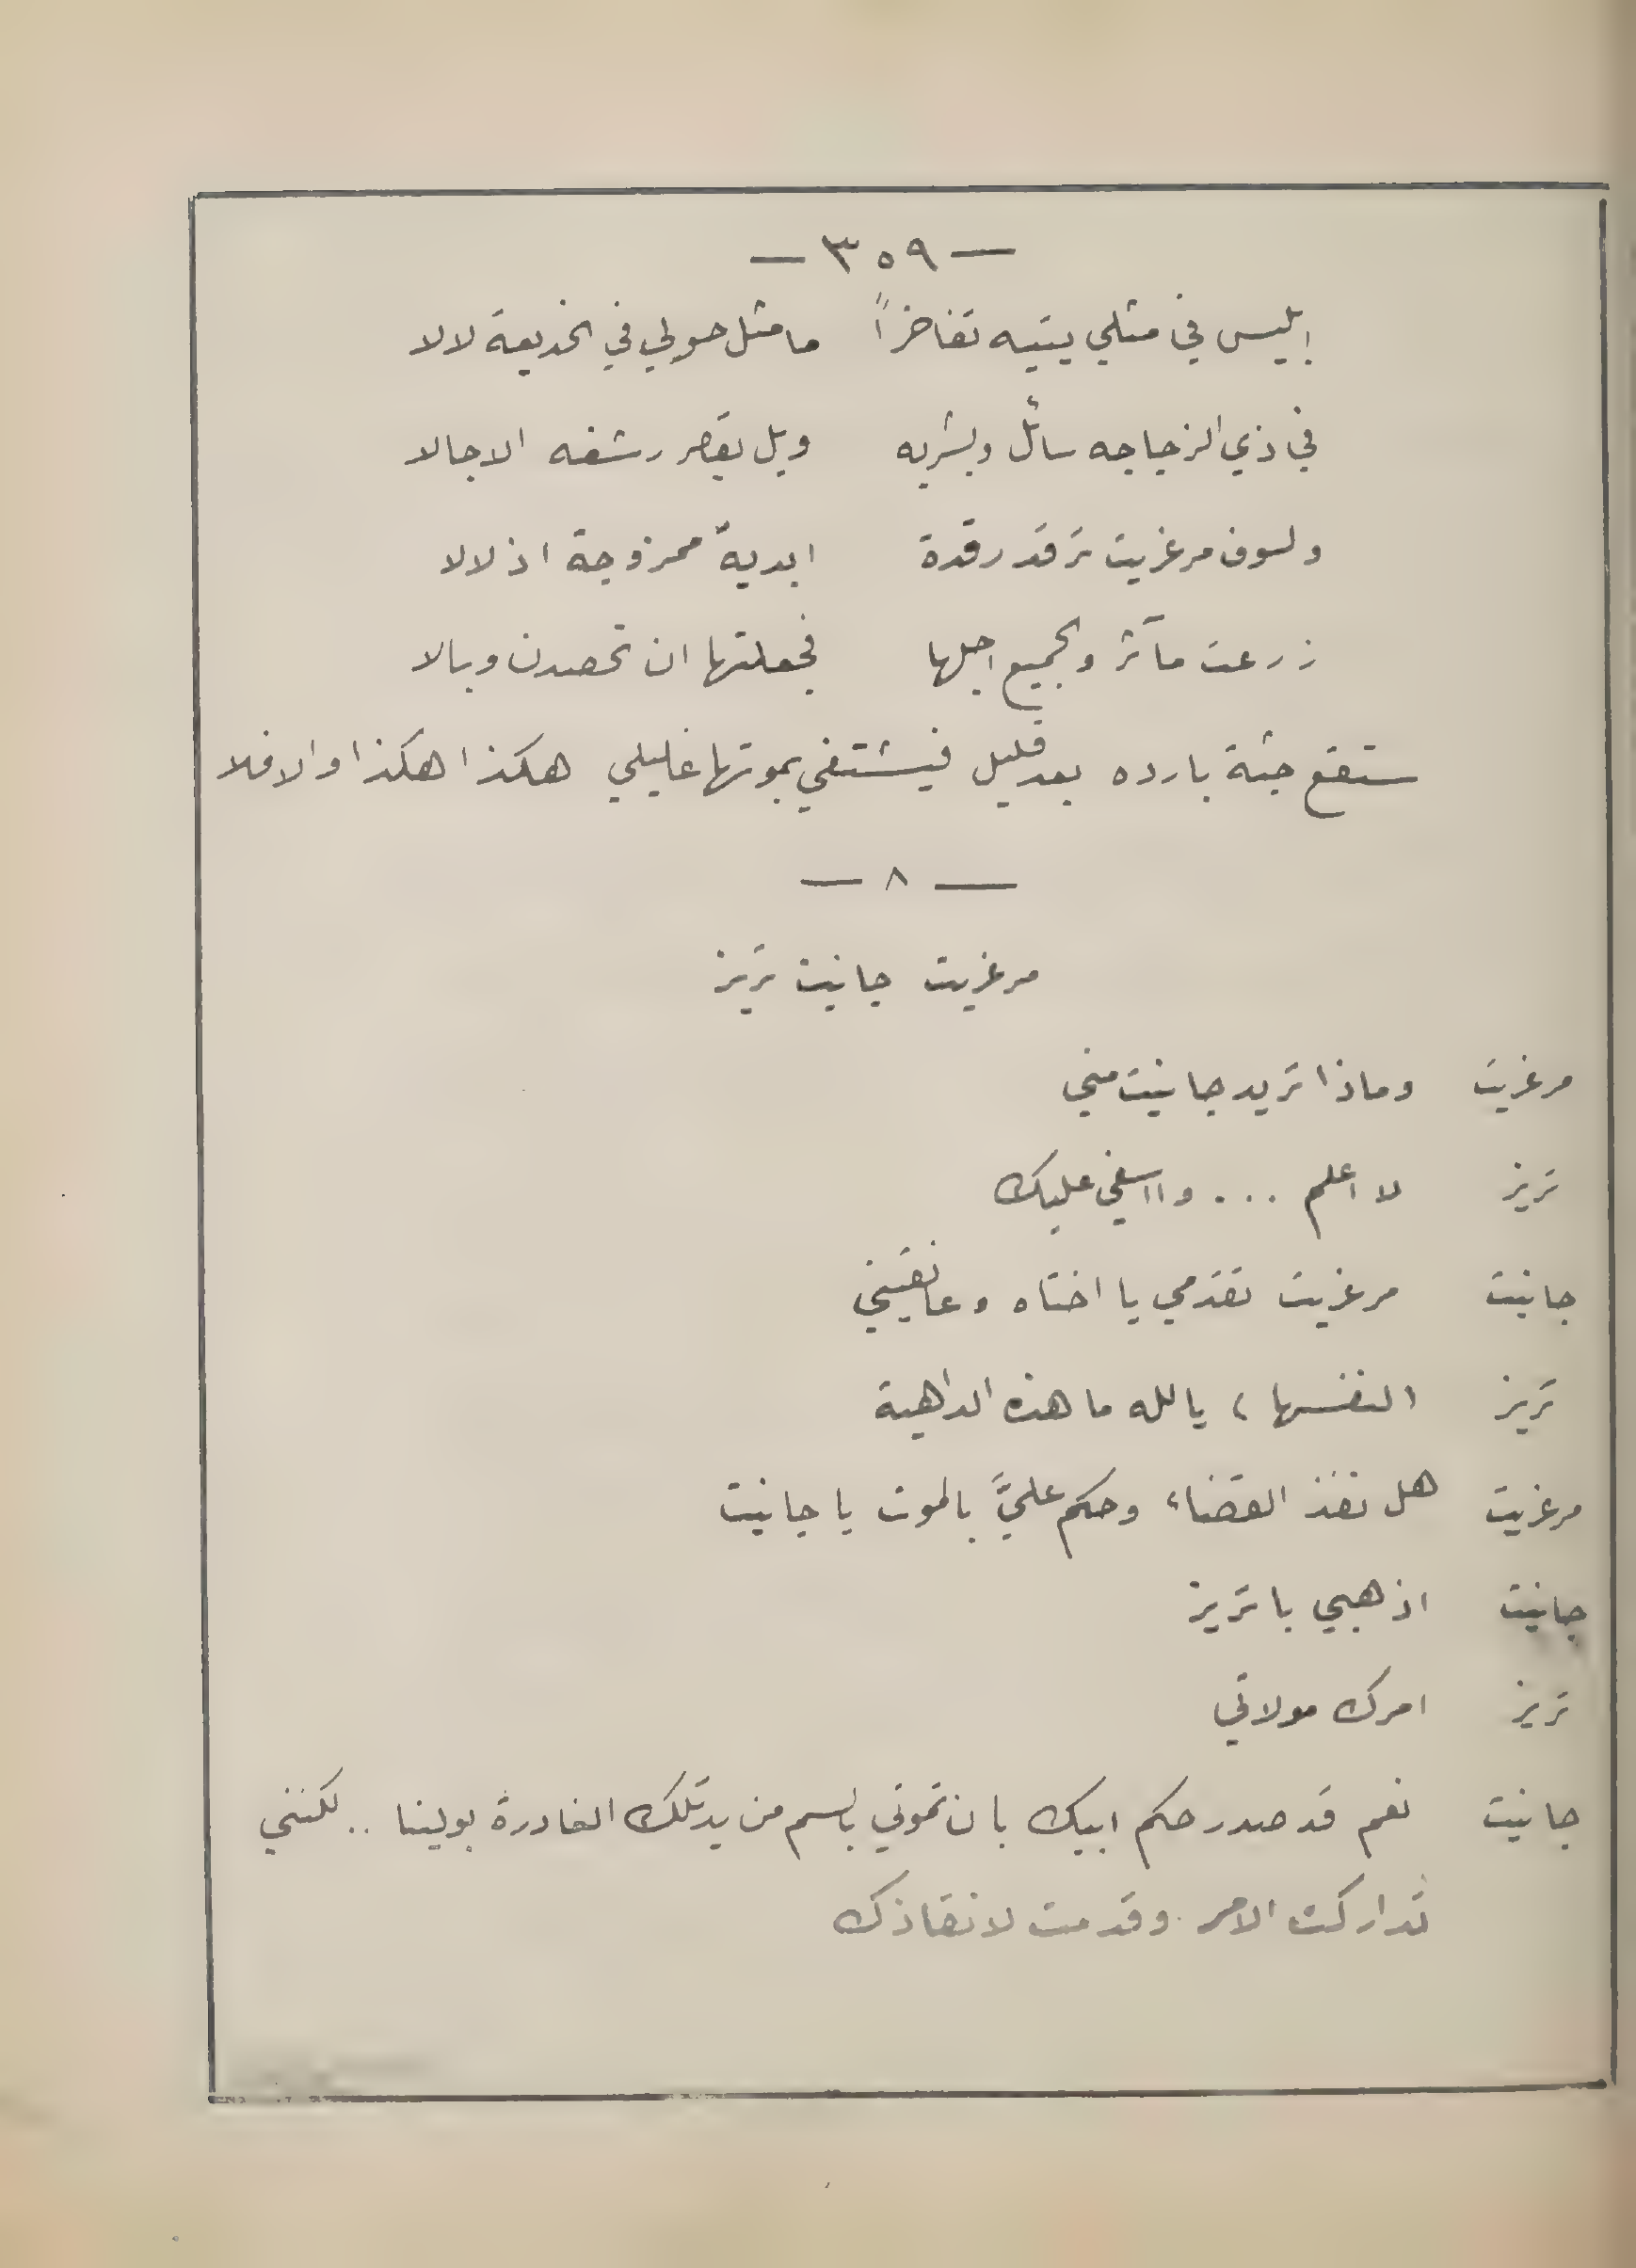 — ٣٥٩ —
ابليس في مثلي يتيه تفاخراً ما مثل حولي في الخديعة لالا
في ذي الزجاجه سائل وبشربه ويل يقصر رشفه الاجالا
ولسوف مرغريت ترقد رقدة ابديةً ممزوجة اذلالا
زرعت مآثر والجميع اجلها فجعلتها ان تحصدن وبالا
ستقع جثة بارده بعد قليل فيشتفي بموتها غليلي هكذا هكذا والا فلا
— ٨ —
مرغريت جانيت تريز
مرغريت وماذا تريد جانيت مني
تريز لا اعلم ... وا اسفي عليك
جانيت مرغريت تقدمي يا اختاه وعانقيني
تريز النفسها، يالله ما هذه الداهية
مرغريت هل نفذ القضاء وحكم عليَّ بالموت يا جانيت
جانيت اذهبي يا تريز
تريز امرك مولاتي
جانيت نعم قد صدر حكم ابيك بان تموتي بالسم من يد تلك الغادرة بولينا .. لكنني
تداركت الامر وقدمت لانقاذك